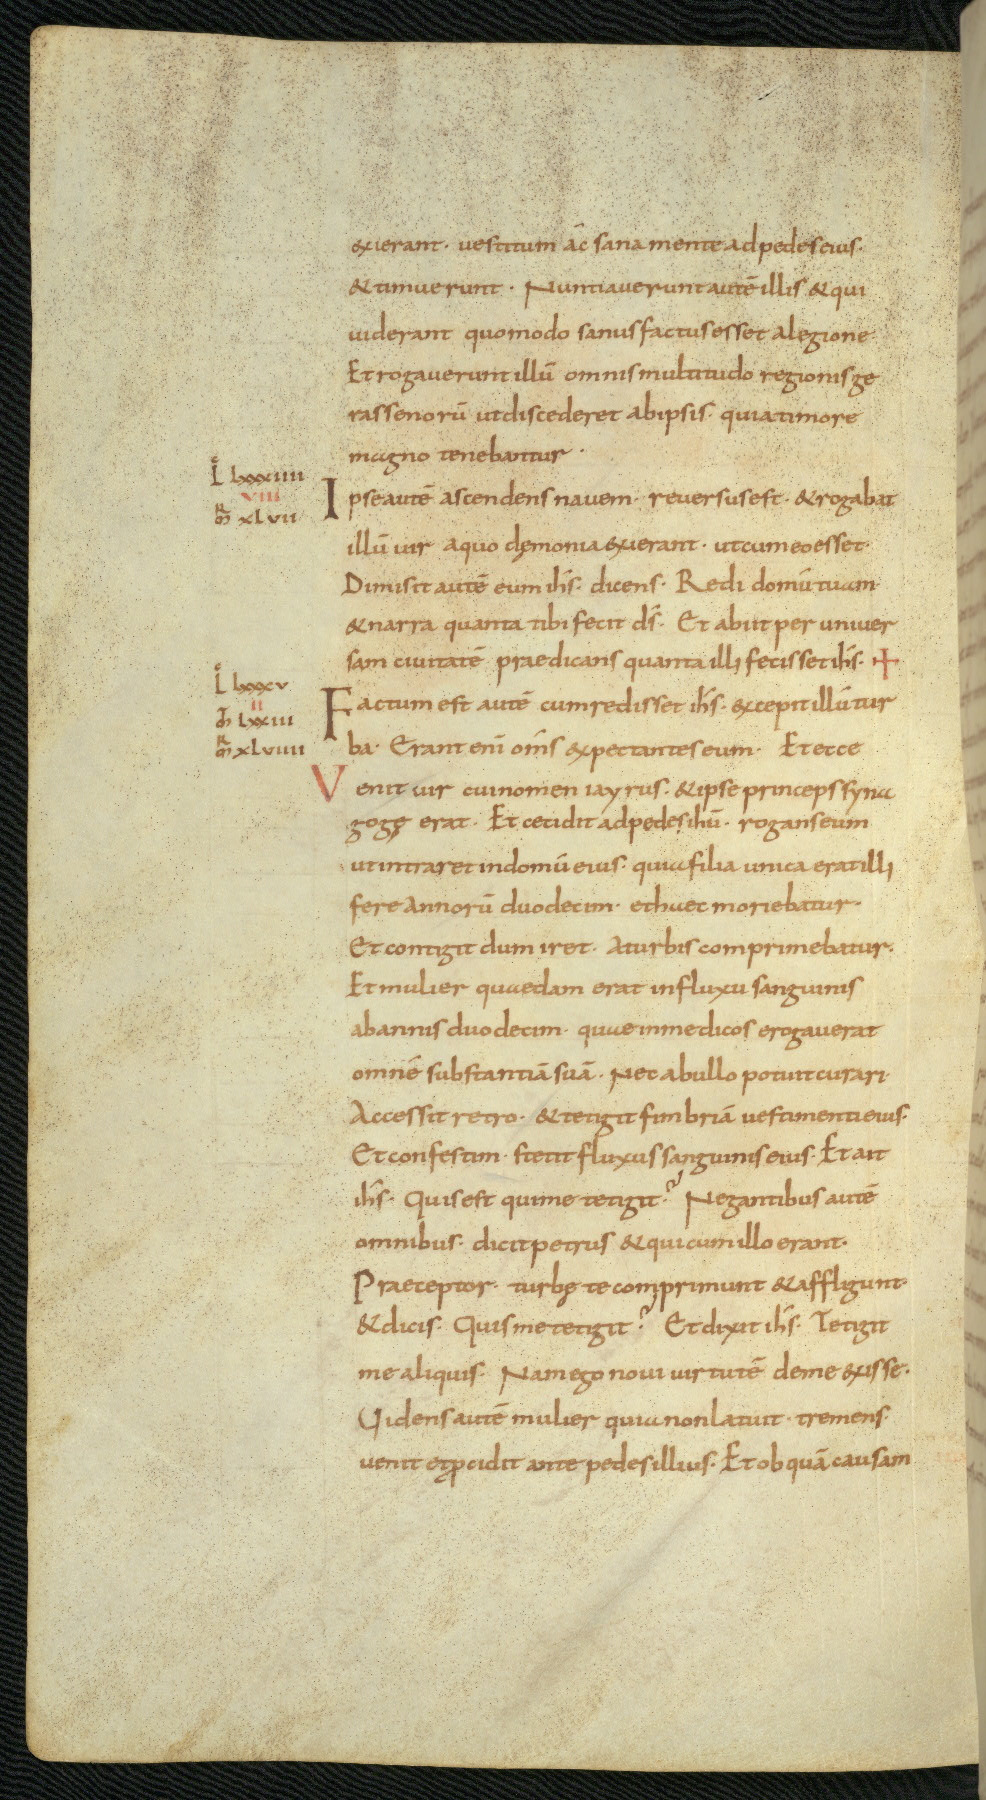 exierant· vestitum ac sana mente ad pedes eius·
& timuerunt· Nuntiaverunt autē illis & qui
viderant quomodo sanus factus esset a legione·
Et rogaverunt illū omnis multitudo regionis ge
rassenorū ut discederet ab ipsis· quia timore
magno tenebantur·
L lxxxiiii
viii
mR xlvii
Ipse autē ascendens navem· reversus est· & rogabat
illū vir a quo dęmonia exierant· ut cum eo esset·
Dimisit autē eum ihs̄· dicens· Redi domū tuam
& narra quanta tibi fecit ds̄· Et abiit per univer
sam civitatē praedicans quanta illi fecisset ihs̄· +
L lxxxv
ii
m̄ lxxiii
mR xlviiii
Factum est autē cum redisset ihs̄· excepit illū tur
ba· Erant enī om̄s expectantes eum· Et ecce
Venit vir cui nomen iayrus· & ipse princeps syna
gogę erat· Et cecidit ad pedes ihū· rogans eum
ut intraret in domū eius· quia filia unica erat illi
fere annorū duodecim· et haec moriebatur·
Et contigit dum iret· a turbis comprimebatur·
Et mulier quaedam erat in fluxu sanguinis
ab annis duodecim· quae in medicos erogaverat
omnē substantiā suā· Nec ab ullo potuit curari·
Accessit retro· & tetigit fimbriā vestimenti eius·
Et confestim· stetit fluxus sanguinis eius· Et ait
ihs̄· Quis est qui me tetigit? Negantibus autē
omnibus· dicit petrus & qui cum illo erant·
Praeceptor· turbę te comprimunt & affligunt·
& dicis· Quis me tetigit? Et dixit ihs̄· Tetigit
me aliquis· Nam ego novi virtutē de me exisse·
Videns autē mulier quia non latuit· tremens·
venit et ꝓcidit ante pedes illius· Et ob quā causam